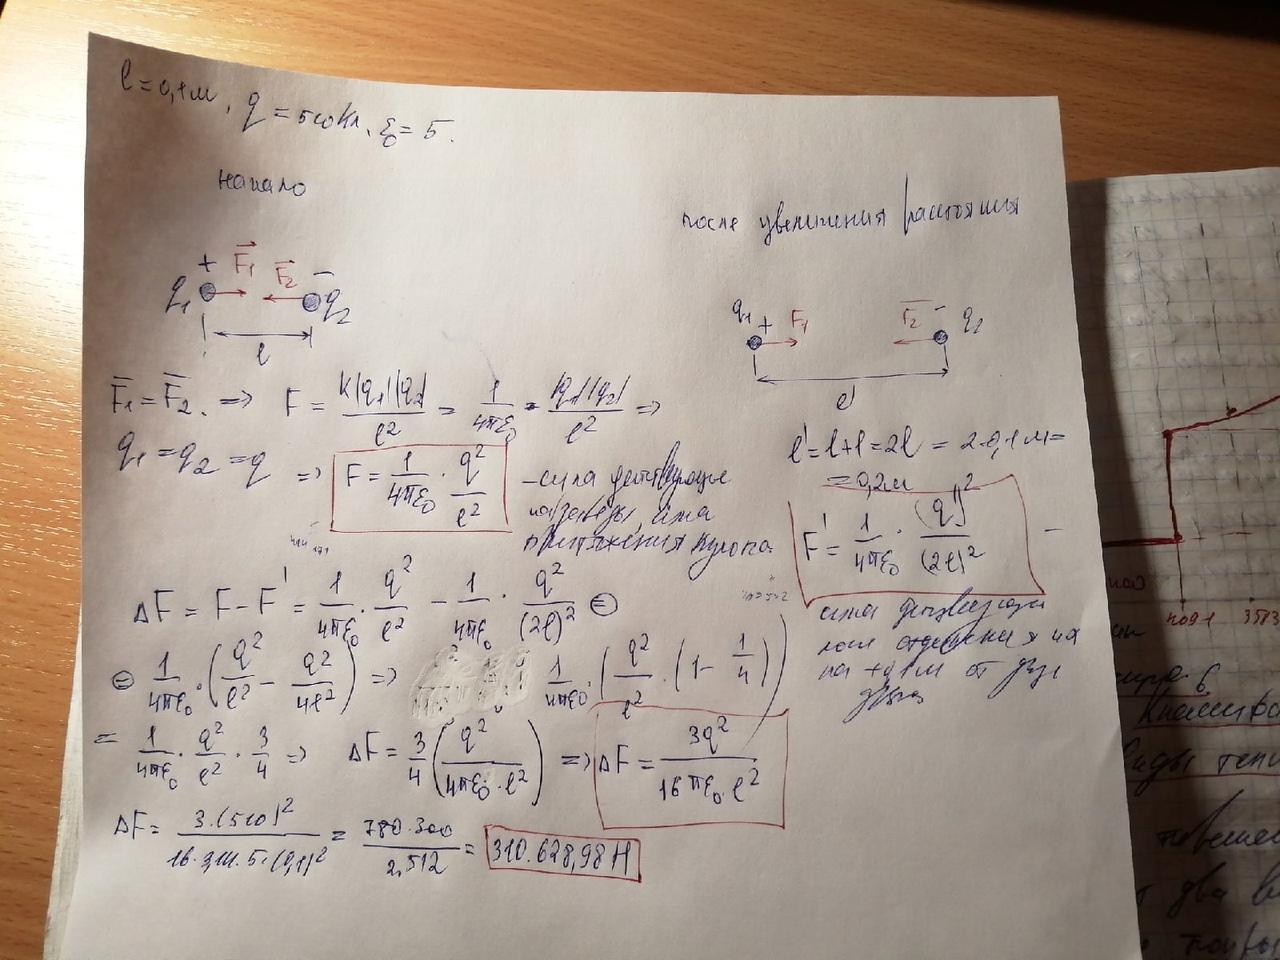 l = 0,1м, q = 510Кл, ε₀ = 5.
начало
после увеличения расстояния
+ F₁ F₂ −
q₁ q₂
l
q₁ + F₁ F₂ − q₂
l'
F₁ = F₂. => F = k|q₁||q₂| / l² = 1 / 4πε₀ · |q₁||q₂| / l² =>
q₁ = q₂ = q => F = 1 / 4πε₀ · q² / l²
− сила действующие
на заряды, сила
притяжения Кулона.
l' = l+l = 2l = 2·0,1м =
= 0,2м
F' = 1 / 4πε₀ · (q')² / (2l)² −
сила
после их
на +0,1м от
друга
ΔF = F − F' = 1 / 4πε₀ · q² / l² − 1 / 4πε₀ · q² / (2l)² ⊜
⊜ 1 / 4πε₀ · (q² / l² − q² / 4l²) => 1 / 4πε₀ · (q² / l² · (1 − 1 / 4))
= 1 / 4πε₀ · q² / l² · 3 / 4 => ΔF = 3 / 4 (q² / 4πε₀ · l²) => ΔF = 3q² / 16πε₀ · l²
ΔF = 3·(510)² / 16·3,14·5·(0,1)² = 780.300 / 2,512 = 310.628,98 Н
под 1 3573